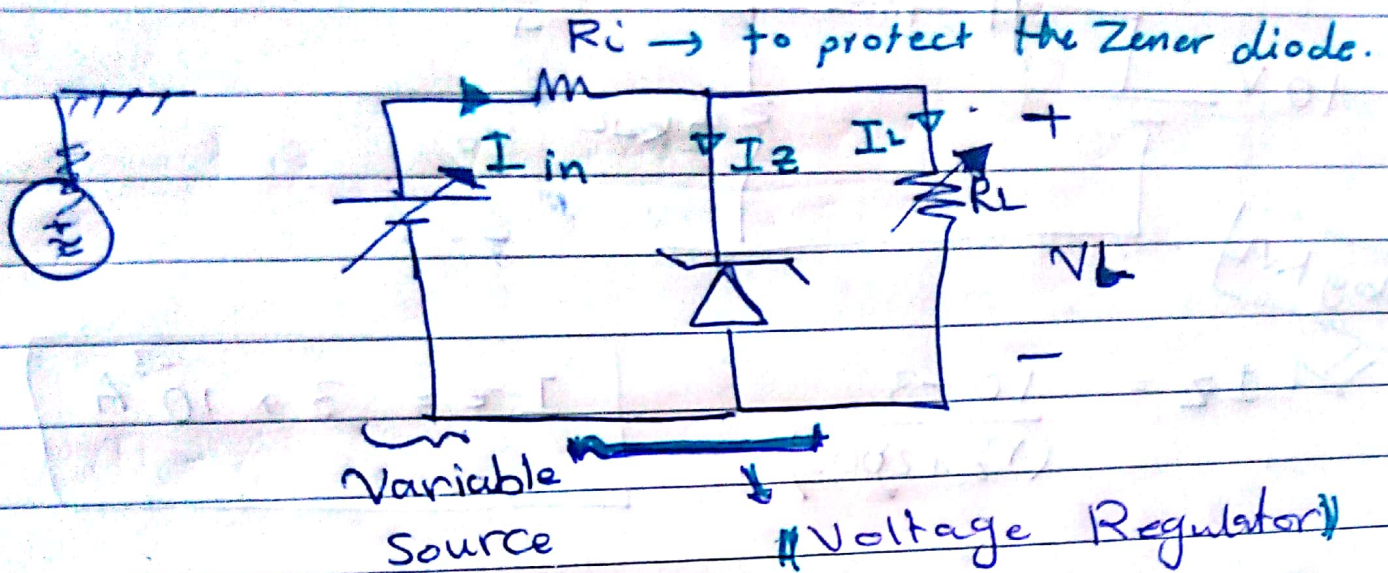 Ri → to protect the Zener diode.
I in
Iz
IL
+
RL
VL
−
Variable
Source
"Voltage Regulator"